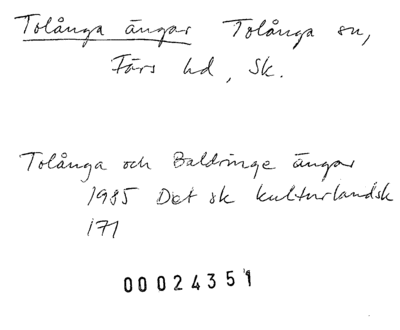 Tolånga ängar Tolånga sn,
Färs hd, Sk.
Tolånga och Baldringe ängar
1985 Det sk kulturlandsk
171
00024351